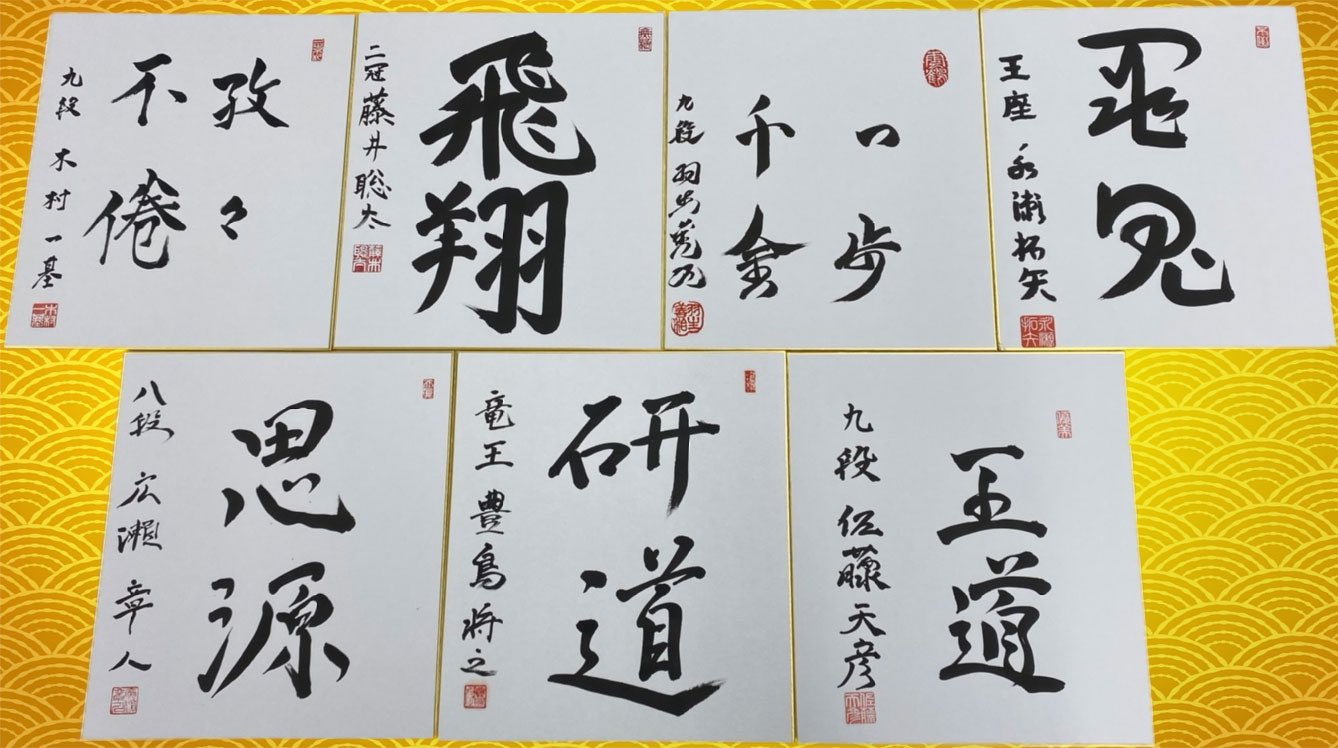 孜々
不倦
九段 木村一基
飛翔
二冠 藤井聡太
一歩
千金
九段 羽生善治
王座 永瀬拓矢
思源
八段 広瀬章人
研道
竜王 豊島将之
王道
九段 佐藤天彦